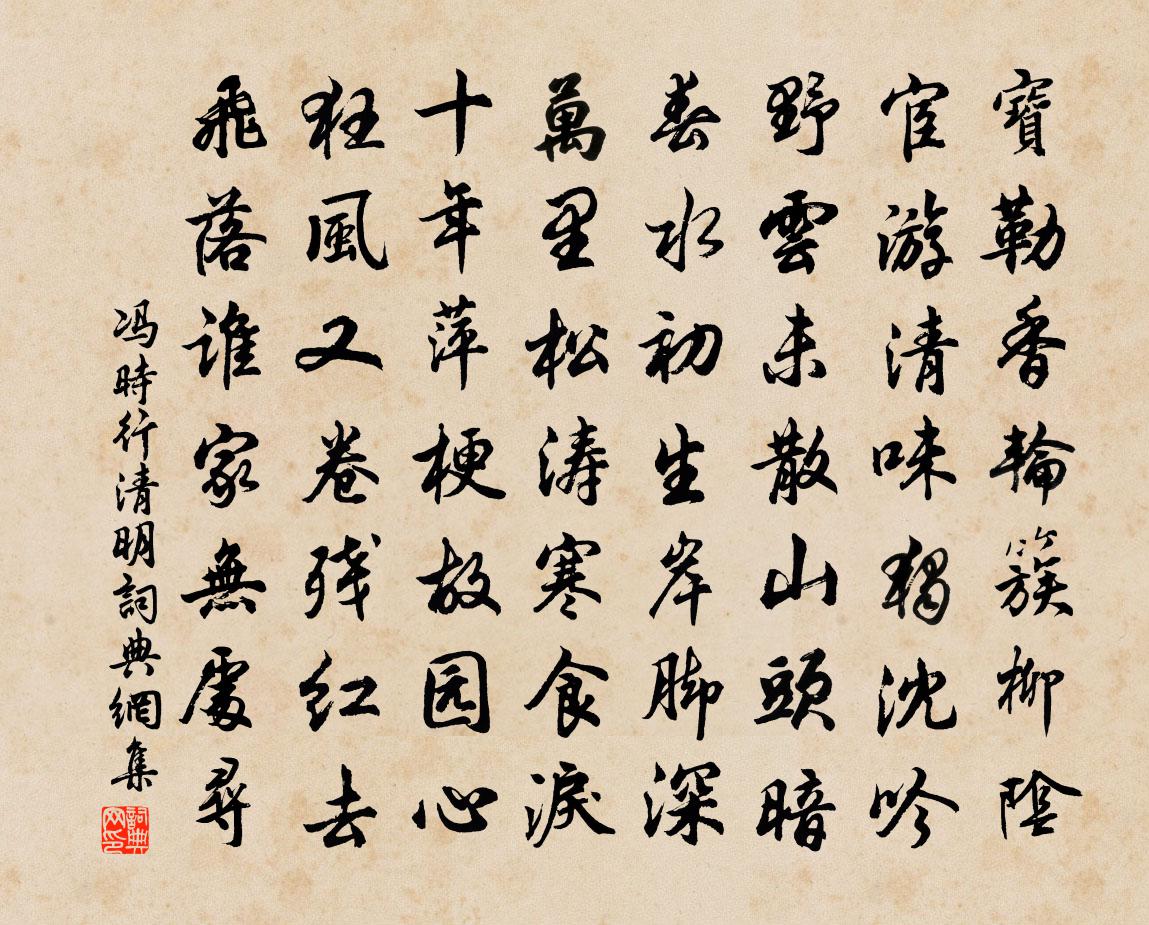 寶勒香輪簇柳陰
宦游清味獨沈吟
野雲未散山頭暗
春水初生岸腳深
萬里松濤寒食淚
十年萍梗故园心
狂風又卷殘红去
飛落誰家無處尋
冯時行清明詞典網集
詞典网印